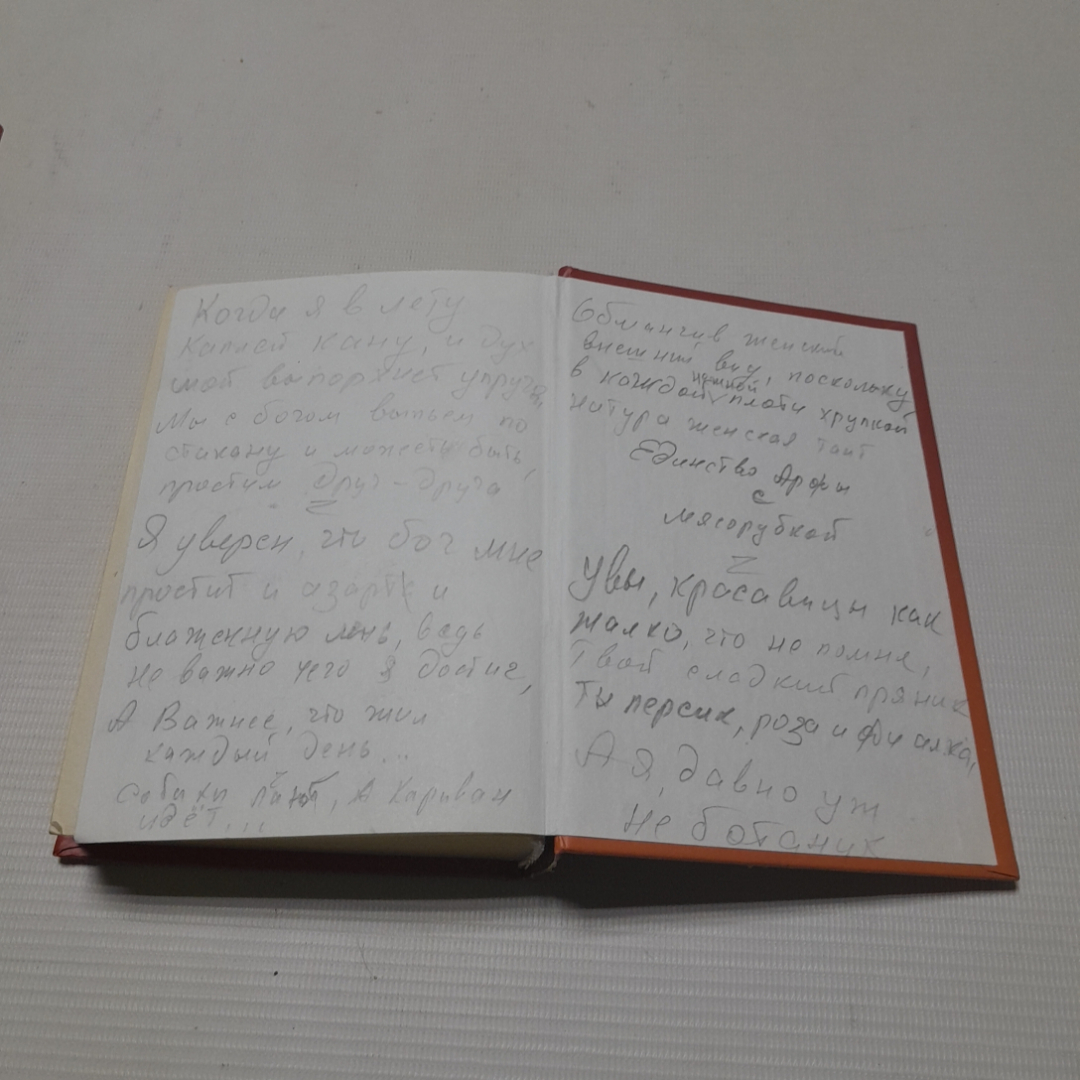 Когда я в лету
каплей кану, и дух
мой выпорхнет упруго,
Мы с богом выпьем по
стакану и может быть,
простим друг-друга
Я уверен, что бог мне
простит и азарт и
блаженную лень, ведь
не важно чего я достиг,
А Важнее, что жил
каждый день...
собаки лают, А Караван
идёт...
Обманчив женский
внешний вид, поскольку
в каждой нежной плоти хрупкой
натура женская таит
Единство Арфы
с
мясорубкой
Увы, красавицы как
жалко, что не помне,
Твой сладкий пряник
Ты персик, роза и фиалка,
А я, давно уж
не ботаник